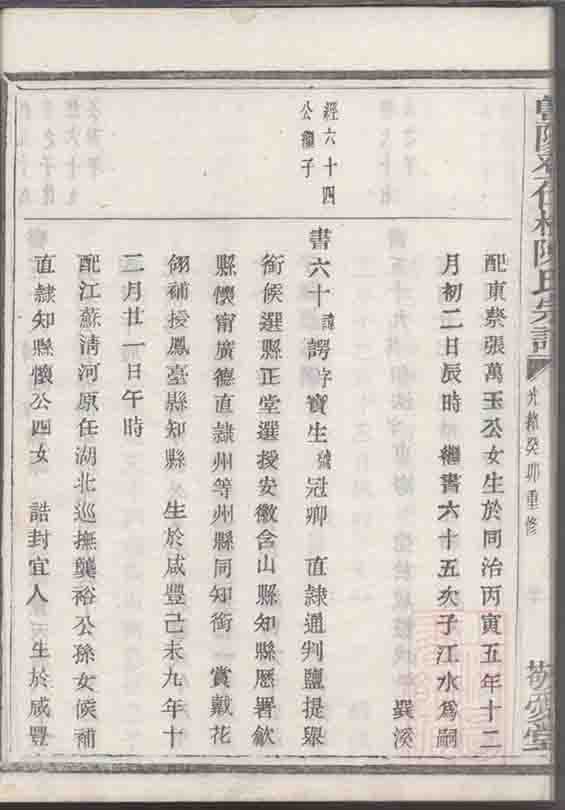 陳氏宗譜
光緒癸卯重修
敬愛堂
配東寮張萬玉公女生於同治丙寅五年十二
月初二日辰時 繼書六十五次子江水為嗣 巽溪
經六十四
公繼子
書六十諱諤字寶生號冠卿 直隸通判鹽提舉
銜候選縣正堂選授安徽含山縣知縣歷署歙
縣懷甯廣德直隸州等州縣同知銜 賞戴花
翎補授鳳臺縣知縣 生於咸豐己未九年十
二月廿一日午時
配江蘇清河原任湖北巡撫龔裕公孫女候補
直隸知縣懷公四女 誥封宜人 生於咸豐